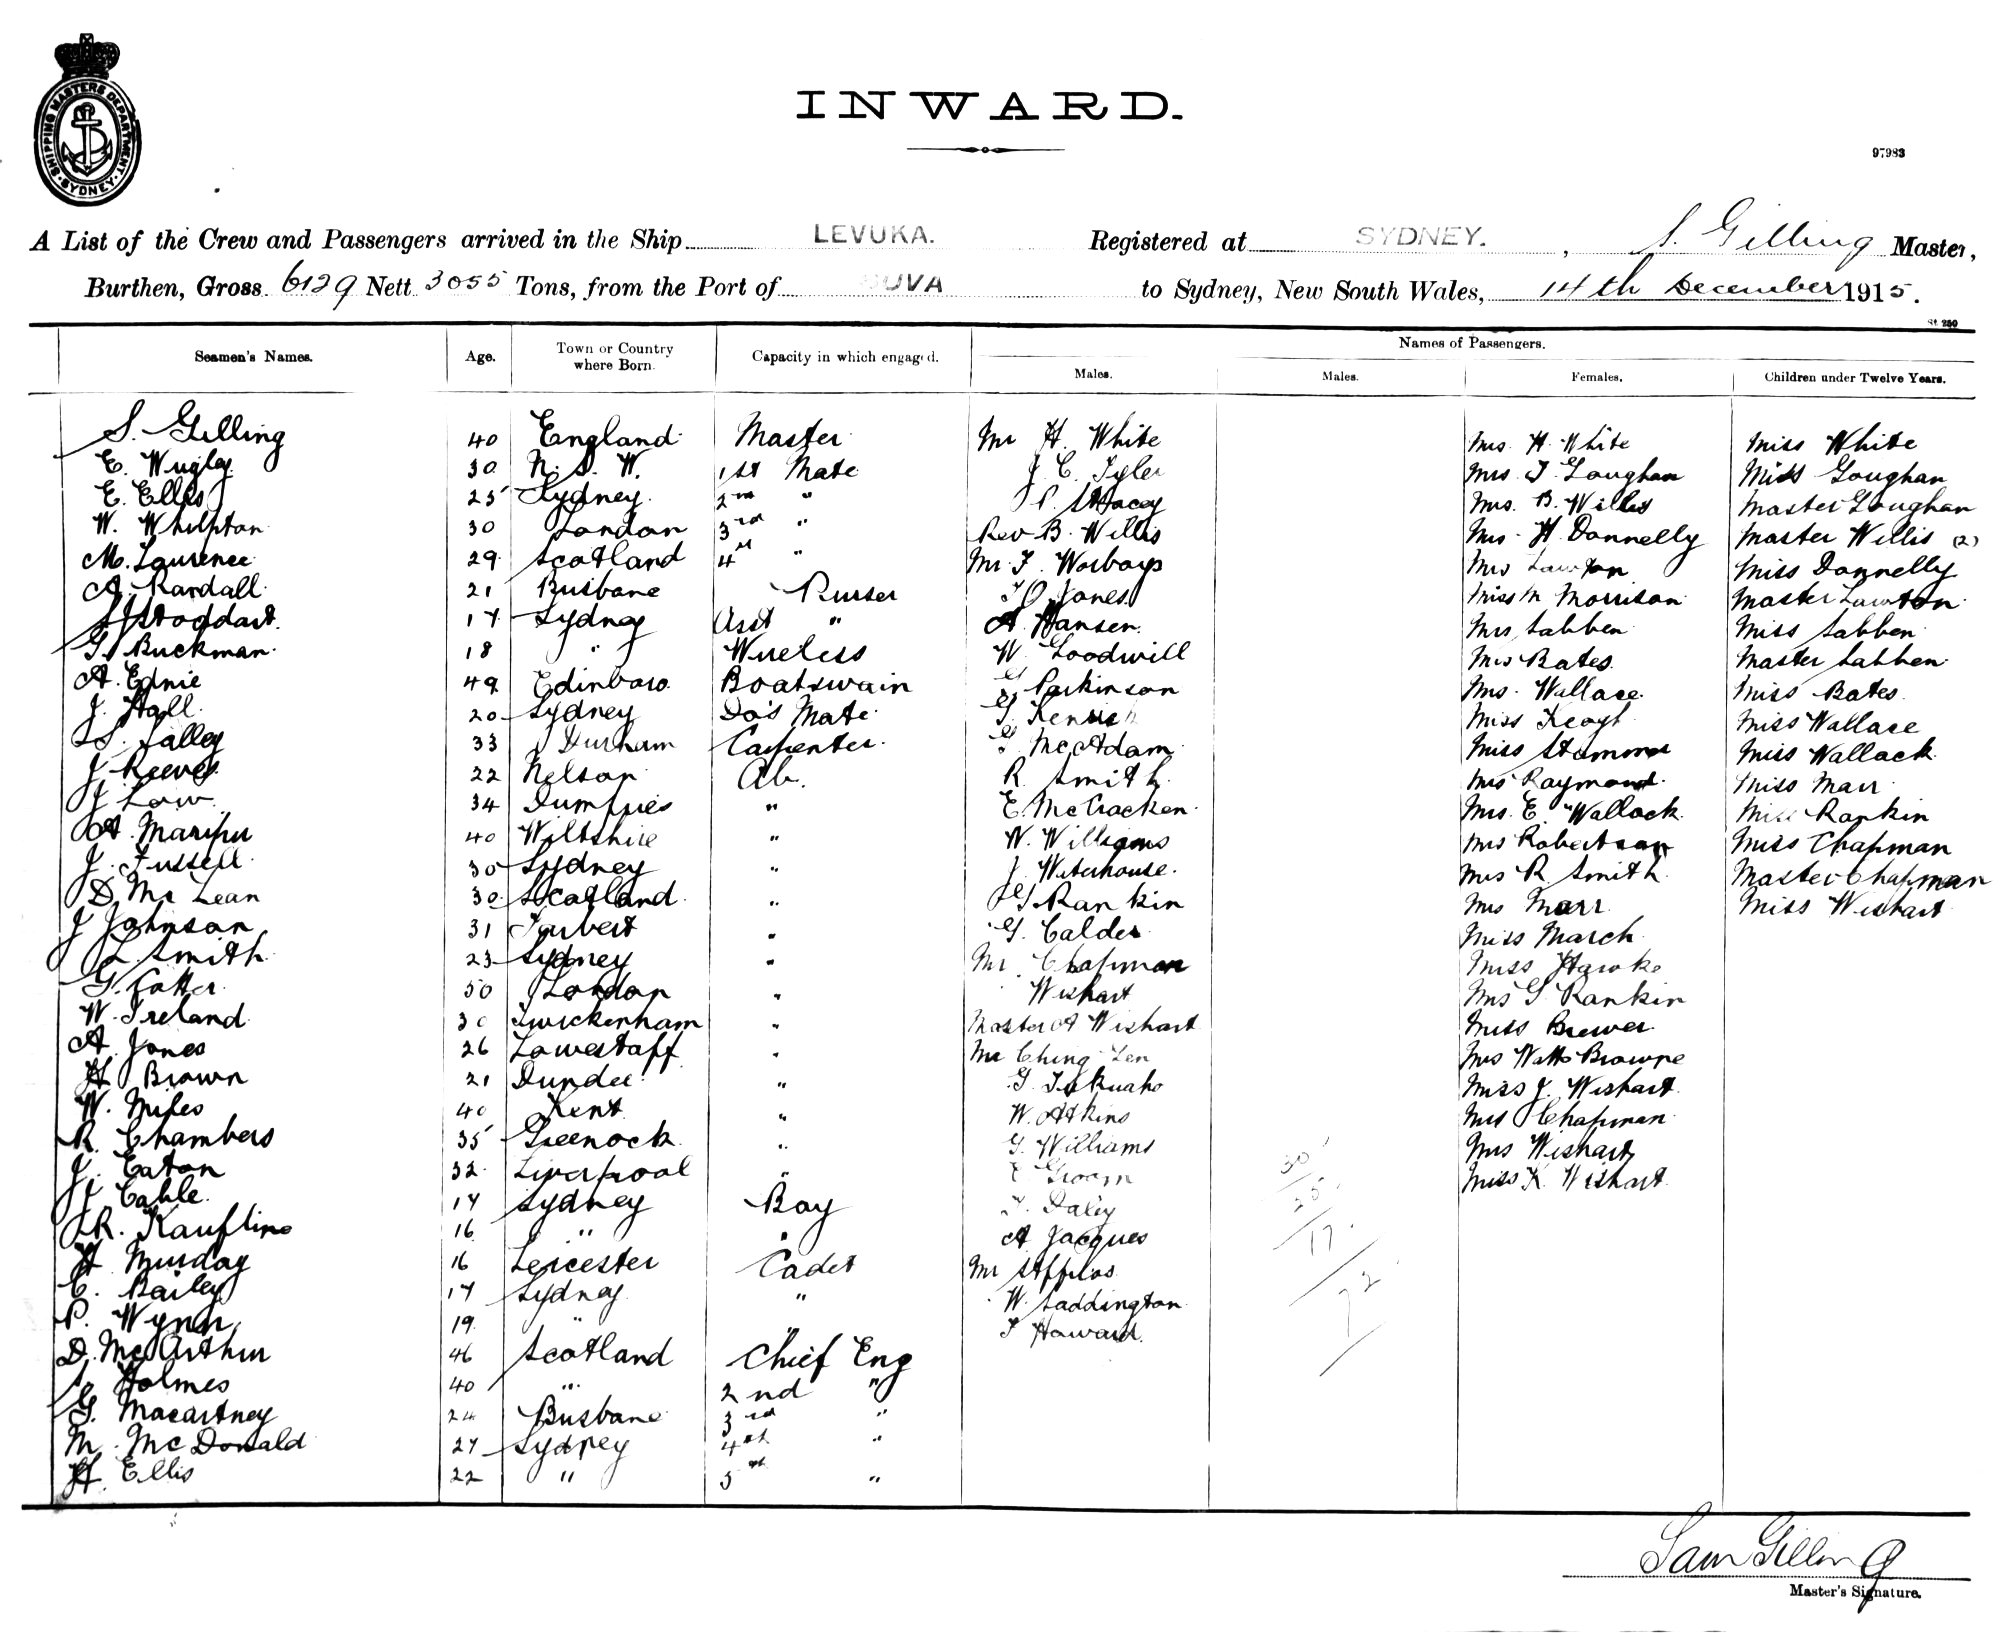 SHIPPING MASTERS DEPARTMENT. SYDNEY.
INWARD.
97983
A List of the Crew and Passengers arrived in the Ship LEVUKA. Registered at SYDNEY. , S. Gilling Master,
Burthen, Gross 6129 Nett 3055 Tons, from the Port of SUVA to Sydney, New South Wales, 14th December 1915.
St. 250
Names of Passengers.
Seamen's Names. Age. Town or Country where Born. Capacity in which engaged. Males. Males. Females. Children under Twelve Years.
S. Gilling 40 England Master Mr H. White Mrs. H. White Miss White
E. Wrigley 30 N. S. W. 1st Mate J. C. Tyler Mrs J Goughan Miss Goughan
E. Ellis 25 Sydney. 2nd " P. Stacey Mrs. B. Willis Master Goughan
W. Whelpton 30 London 3rd " Rev B. Willis Mrs. H. Donnelly Master Willis (2)
M. Laurence 29 Scotland 4th " Mr. F. Worboys Mrs Lawton Miss Donnelly
A. Randall. 21 Brisbane Purser Jones Miss M Morrison Master Lawton
Stoddart. 17 Sydney Asst " A. Hansen. Mrs Sabben Miss Sabben
G. Buckman. 18 " Wireless W. Goodwill Mrs Bates. Master Sabben
A. Ednie 49 Edinboro Boatswain G Parkinson Mrs. Wallace Miss Bates
J. Hall. 20 Sydney Do's Mate G. Kenrick Miss Keogh Miss Wallace
S. Jalley 33 Durham Carpenter. G McAdam Miss Miss Wallack
J. Reeves 22 Nelson Ab. R. Smith Mrs Raymond Miss Marr
J. Law 34 Dumfries " E. McCracken. Mrs. E. Wallack. Miss Rankin
A. 40 Wiltshire " W. Williams Mrs Robertson Miss Chapman
J. Fussell 30 Sydney " J. Waterhouse. Mrs R Smith Master Chapman
D. McLean 30 Scotland " G Rankin Mrs Marr Miss Wishart
J Johnson 31 Tarbert " G. Calder Miss March
L. Smith 23 Sydney " Mr. Chapman Miss Hawke
G. Cotter 50 London " Wishart Mrs G Rankin
W. Ireland 30 Twickenham " Master A Wishart Miss Brewer
A. Jones 26 Lowestoff " Mr Ching Len Mrs Watts Browne
H Brown 21 Dundee " G. Miss J. Wishart
W. Miles 40 Kent " W. Atkins Mrs Chapman
R. Chambers 35 Greenock. " G. Williams Mrs Wishart
J. Eaton 32 Liverpool " E Groom Miss K Wishart
J Cable. 17 Sydney Boy F. Daley
R. Kaufline 16 " " A Jacques
H Munday 16 Leicester Cadet Mr
C. Bailey 17 Sydney " W. Saddington
P. Wynn 19 " " F Howard.
D. McArthur 46 Scotland Chief Eng
Holmes 40 " 2nd "
G. Macartney 24 Brisbane 3rd "
M. McDonald 27 Sydney 4th "
H. Ellis 22 " 5th "
30
25
17
72
Sam Gilling
Master's Signature.